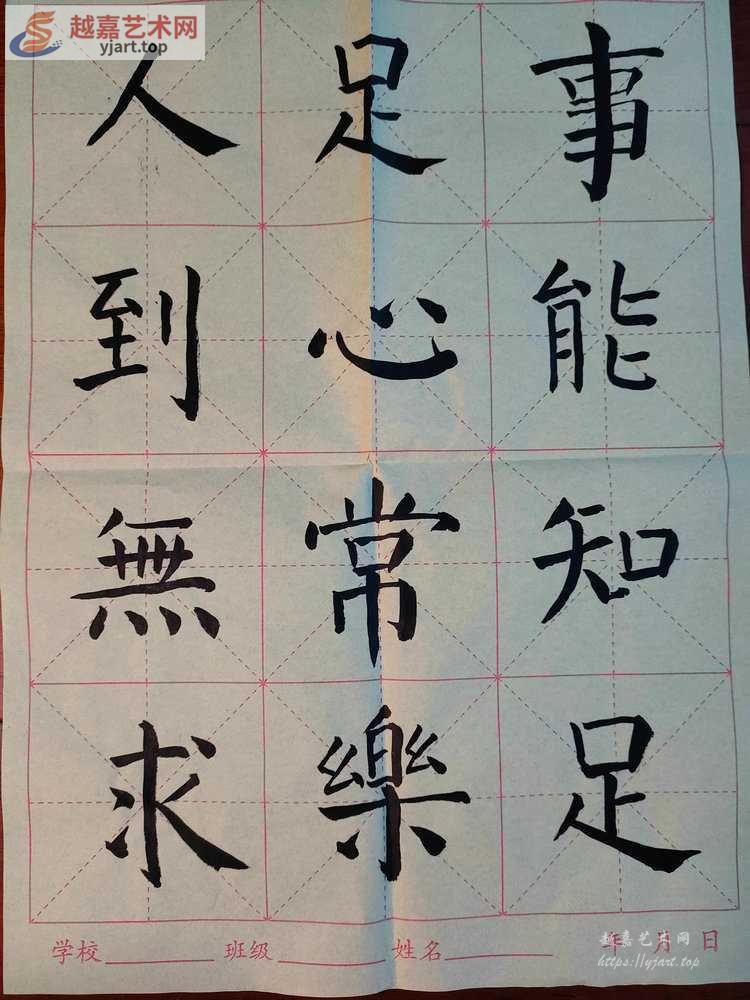 越嘉艺术网
yjart.top
事能知足
足心常樂
人到無求
学校 班级 姓名 年 月 日
越嘉艺术网
https://yjart.top